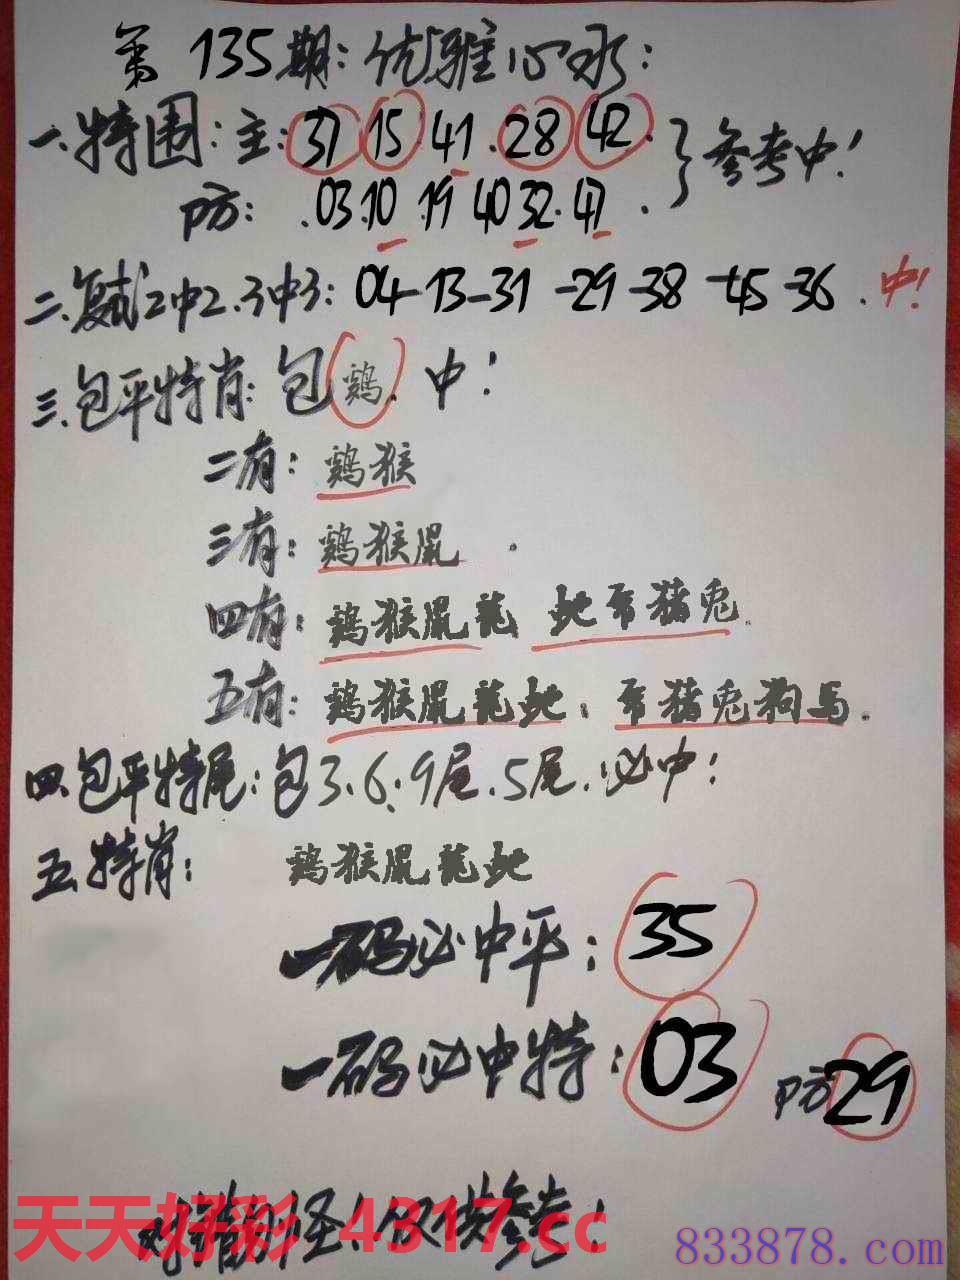 第135期：优雅心水：
一、特围：主：37 15 41. 28 42. 参考中！
防：.03.10 19 40 32. 47.
二、复试2中2.3中3：04-13-31-29-38-45-36. 中！
三、包平特肖：包鸡. 中！
二有：鸡猴
三有：鸡猴鼠.
四有：鸡猴鼠龙 蛇 猪兔.
五有：鸡猴鼠龙蛇： 猪兔狗马.
四.包平特尾：包3、6、9尾.5尾.必中！
五.特肖： 鸡猴鼠龙蛇
一码必中平：35
一码必中特：03 防29
仅供参考！
天天好彩 4317.cc
833878.com